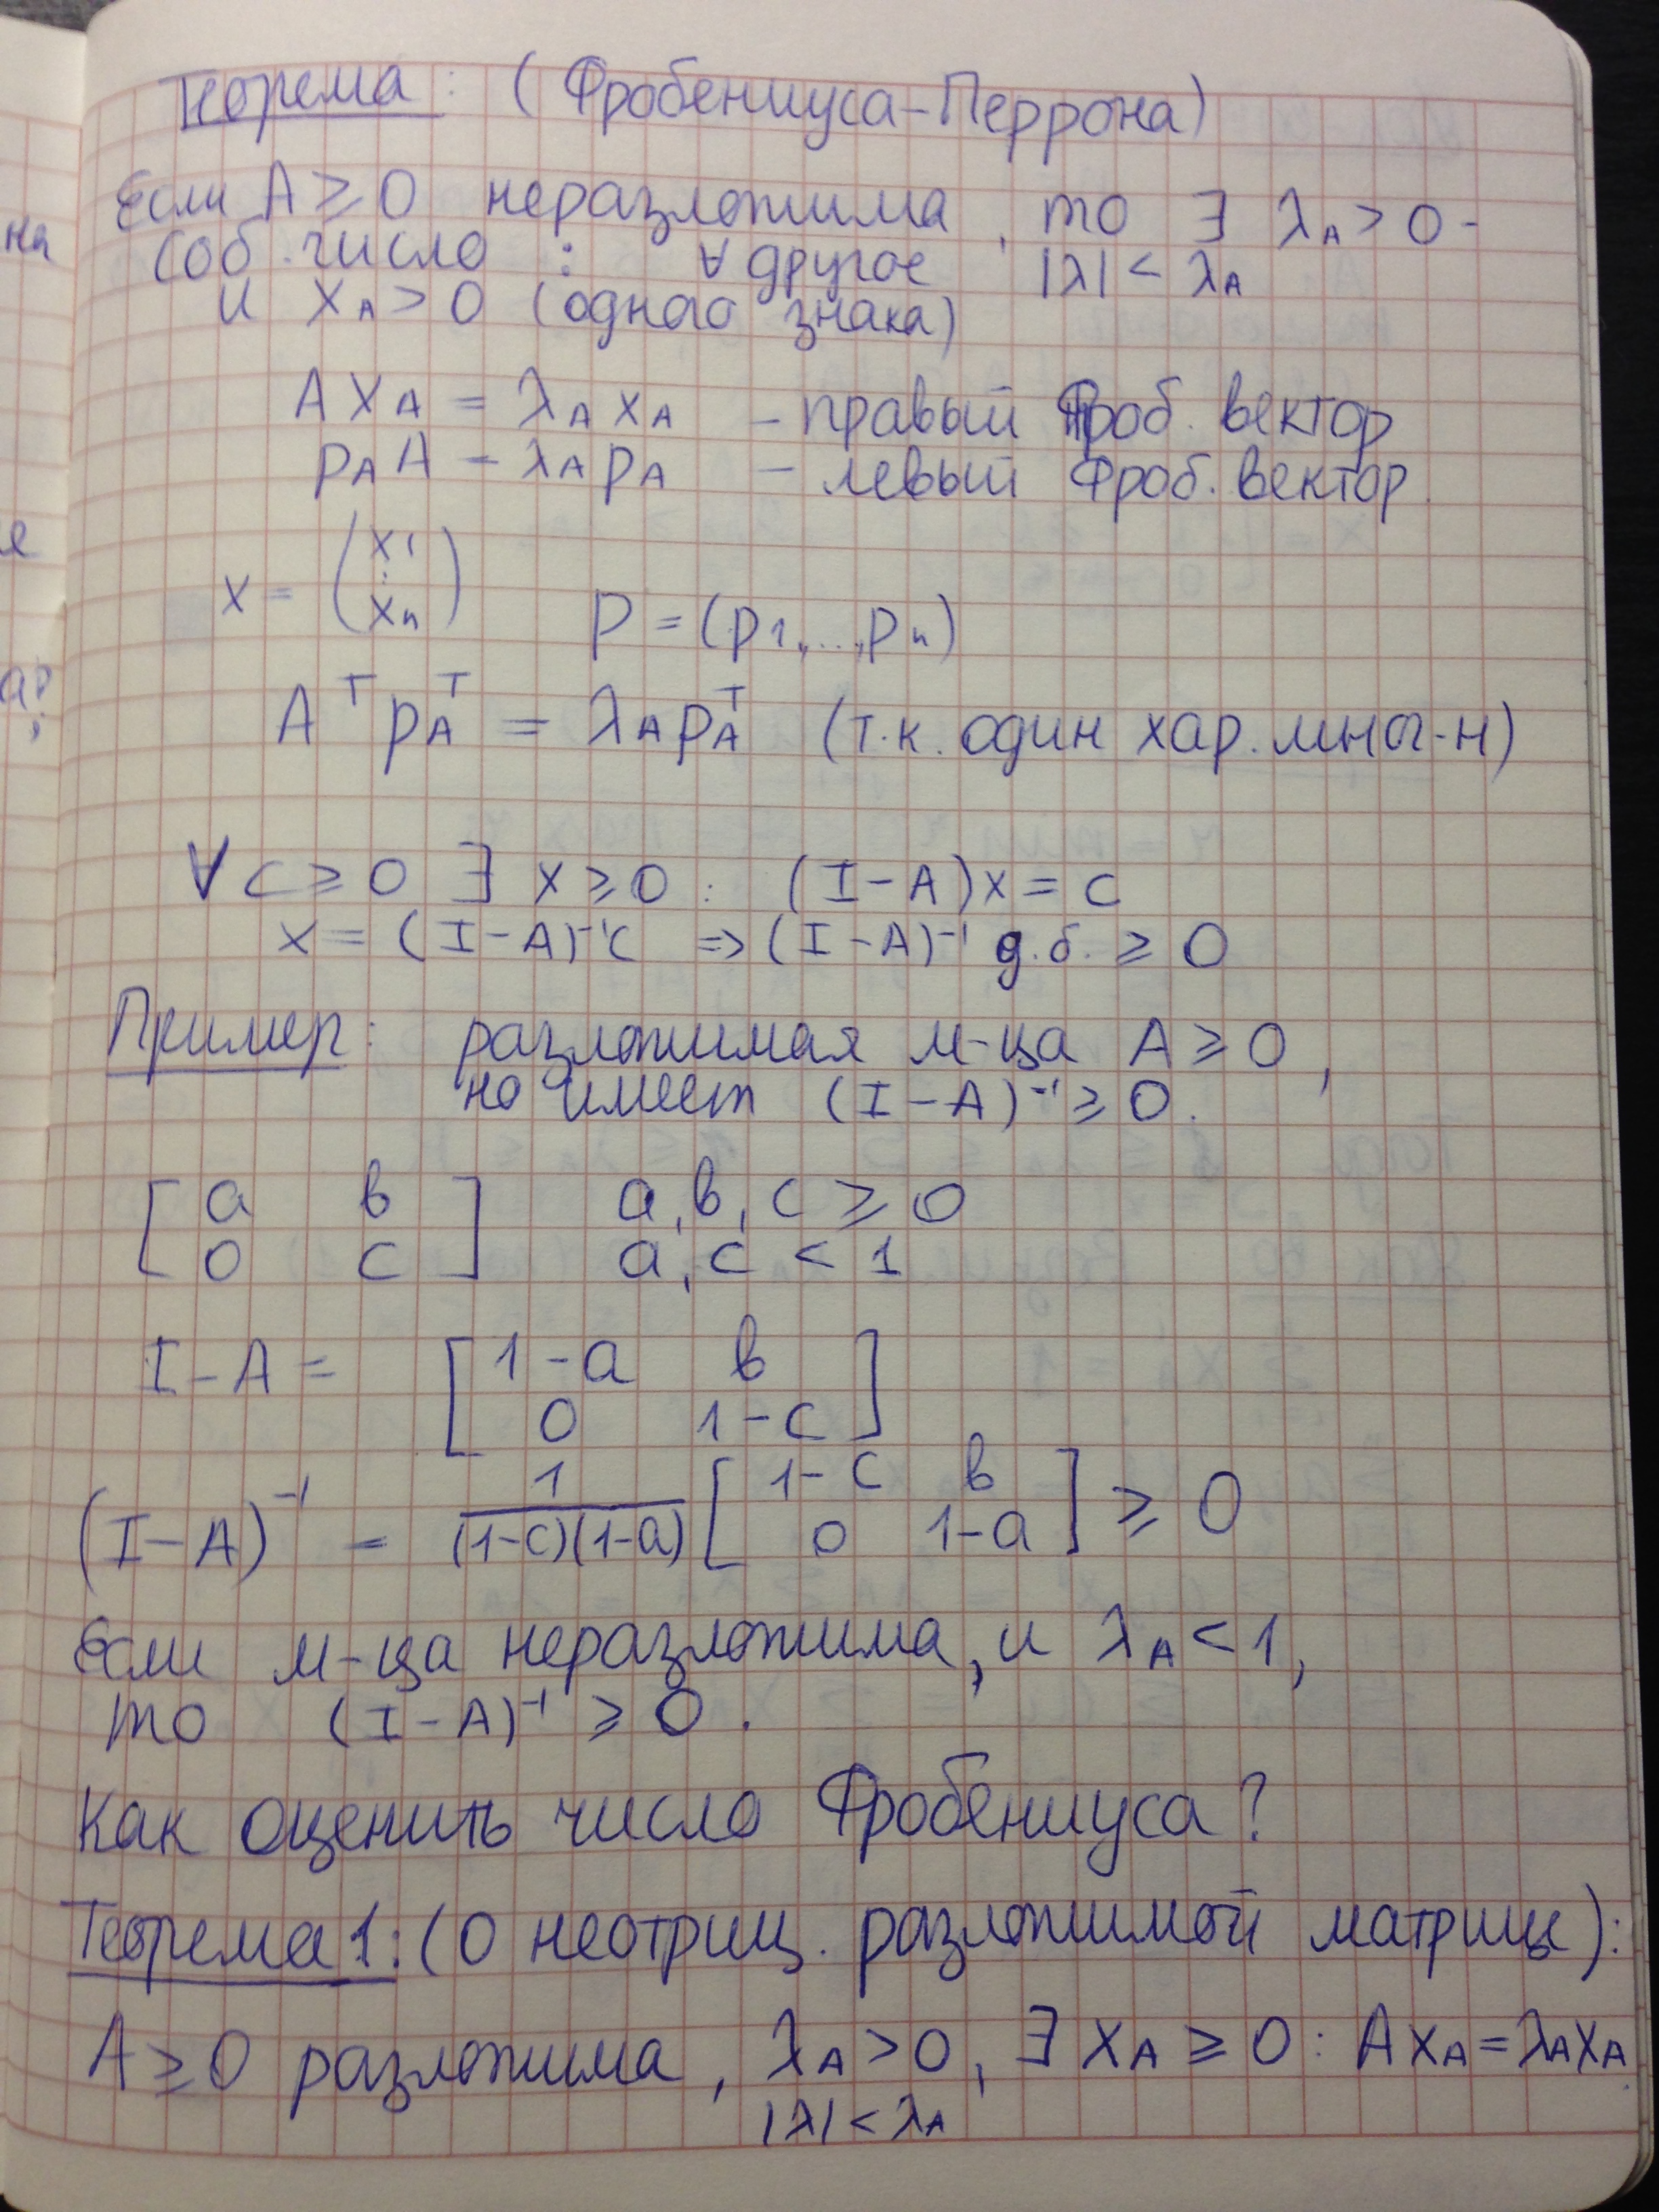 Теорема: (Фробениуса-Перрона)
Если A ≥ 0 неразложима, то ∃ λ_A > 0 -
соб. число : ∀ другое |λ| < λ_A
и x_A > 0 (одного знака)
A x_A = λ_A x_A - правый Фроб. вектор
p_A A = λ_A p_A - левый Фроб. вектор
x = (x_1 ⋮ x_n) p = (p_1, ..., p_n)
A^T p_A^T = λ_A p_A^T (т.к. один хар. мног-н)
∀ c ≥ 0 ∃ x ≥ 0 : (I - A)x = c
x = (I - A)^{-1} c ⇒ (I - A)^{-1} д.б. ≥ 0
Пример: разложимая м-ца A ≥ 0,
но имеет (I - A)^{-1} ≥ 0.
[ a в a, в, c ≥ 0
0 c ] a, c < 1
I - A = [ 1 - a в
0 1 - c ]
(I - A)^{-1} = 1/((1-c)(1-a)) [ 1 - c в
0 1 - a ] ≥ 0
Если м-ца неразложима, и λ_A < 1,
то (I - A)^{-1} ≥ 0.
Как оценить число Фробениуса?
Теорема 1: (О неотриц. разложимой матрицы):
A ≥ 0 разложима, λ_A > 0, ∃ x_A ≥ 0 : A x_A = λ_A x_A
|λ| < λ_A
на